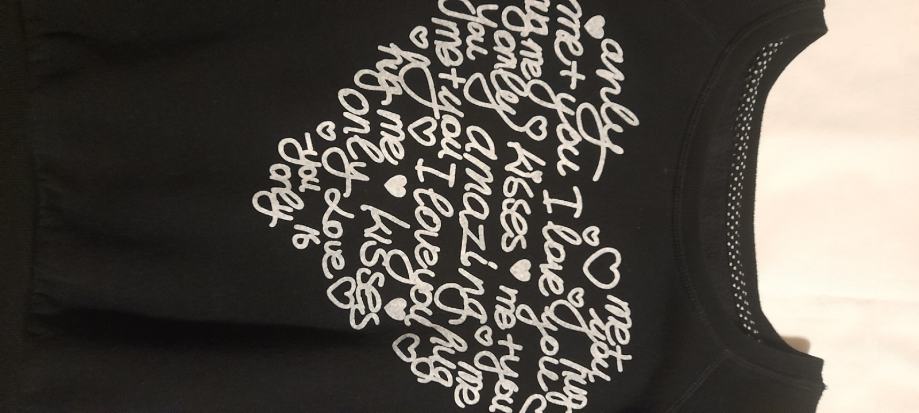 only me+
you
me+ you I love you hug
me
only kisses me+you
you amazing
me+you I love you hug
hug me kisses
only love
you
only